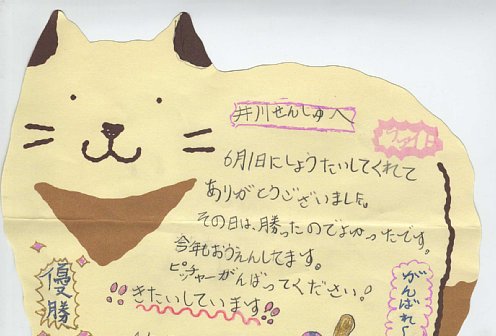 井川せんしゅへ
ファイト
6月1日にしょうたいしてくれて
ありがとうございました。
その日は、勝ったのでよかったです。
今年もおうえんしてます。
ピッチャーがんばってください!
きたいしています!!
優勝
がんばれ